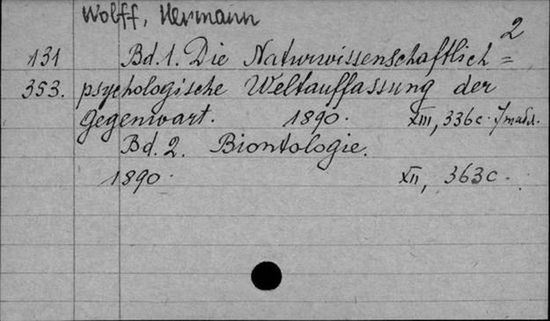 Wolff, Hermann
2
131 Bd. 1. Die Naturwissenschaftlich=
353. psychologische Weltauffassung der
Gegenwart. 1890. XIII, 336c.
Bd. 2. Biontologie.
1890. XII, 363c.